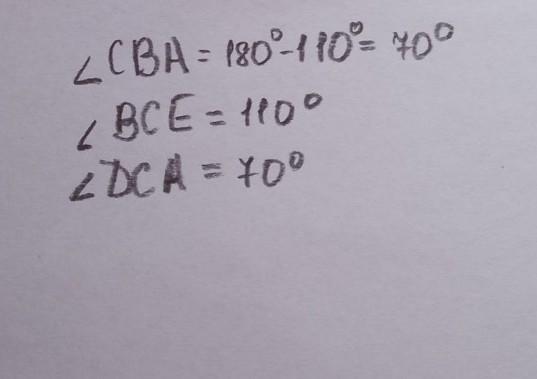 ∠CBA = 180°-110°= 70°
∠ BCE = 110°
∠DCA = 70°